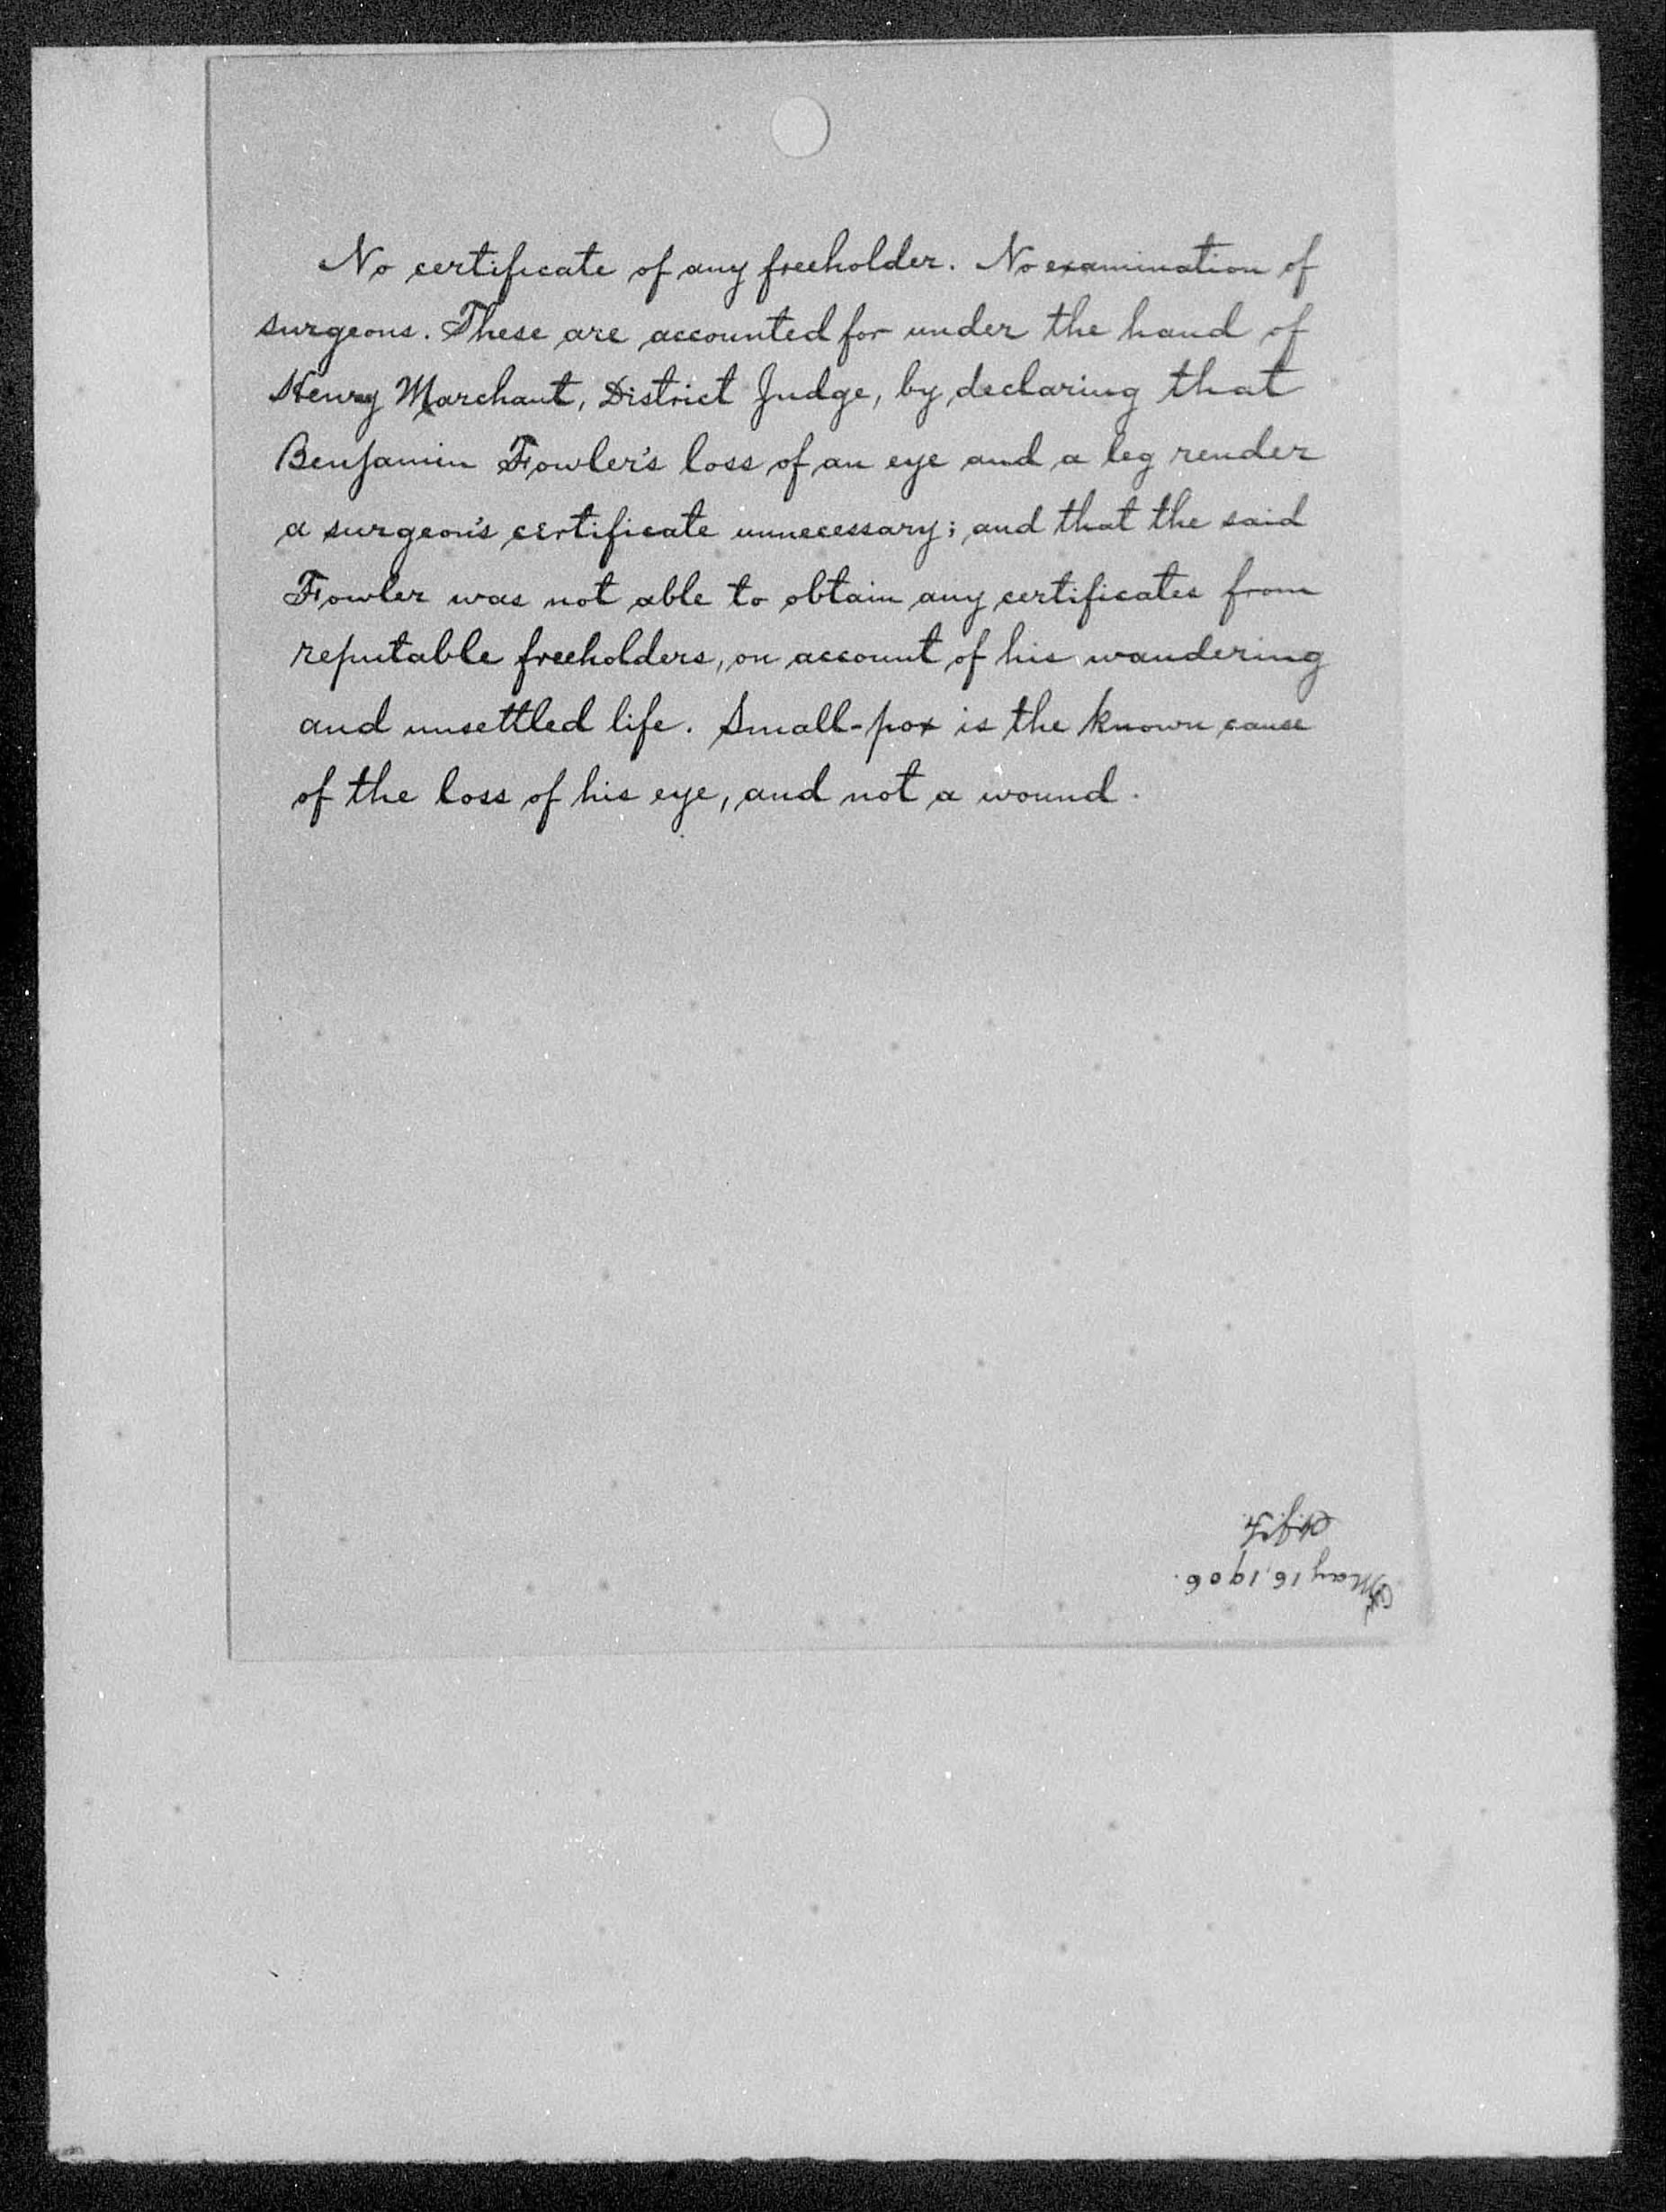 No certificate of any freeholder. No examination of
surgeons. These are accounted for under the hand of
Henry Marchant, District Judge, by declaring that
Benjamin Fowler's loss of an eye and a leg render
a surgeon's certificate unnecessary; and that the said
Fowler was not able to obtain any certificates from
reputable freeholders, on account of his wandering
and unsettled life. Small-pox is the known cause
of the loss of his eye, and not a wound.
May 16, 1906.